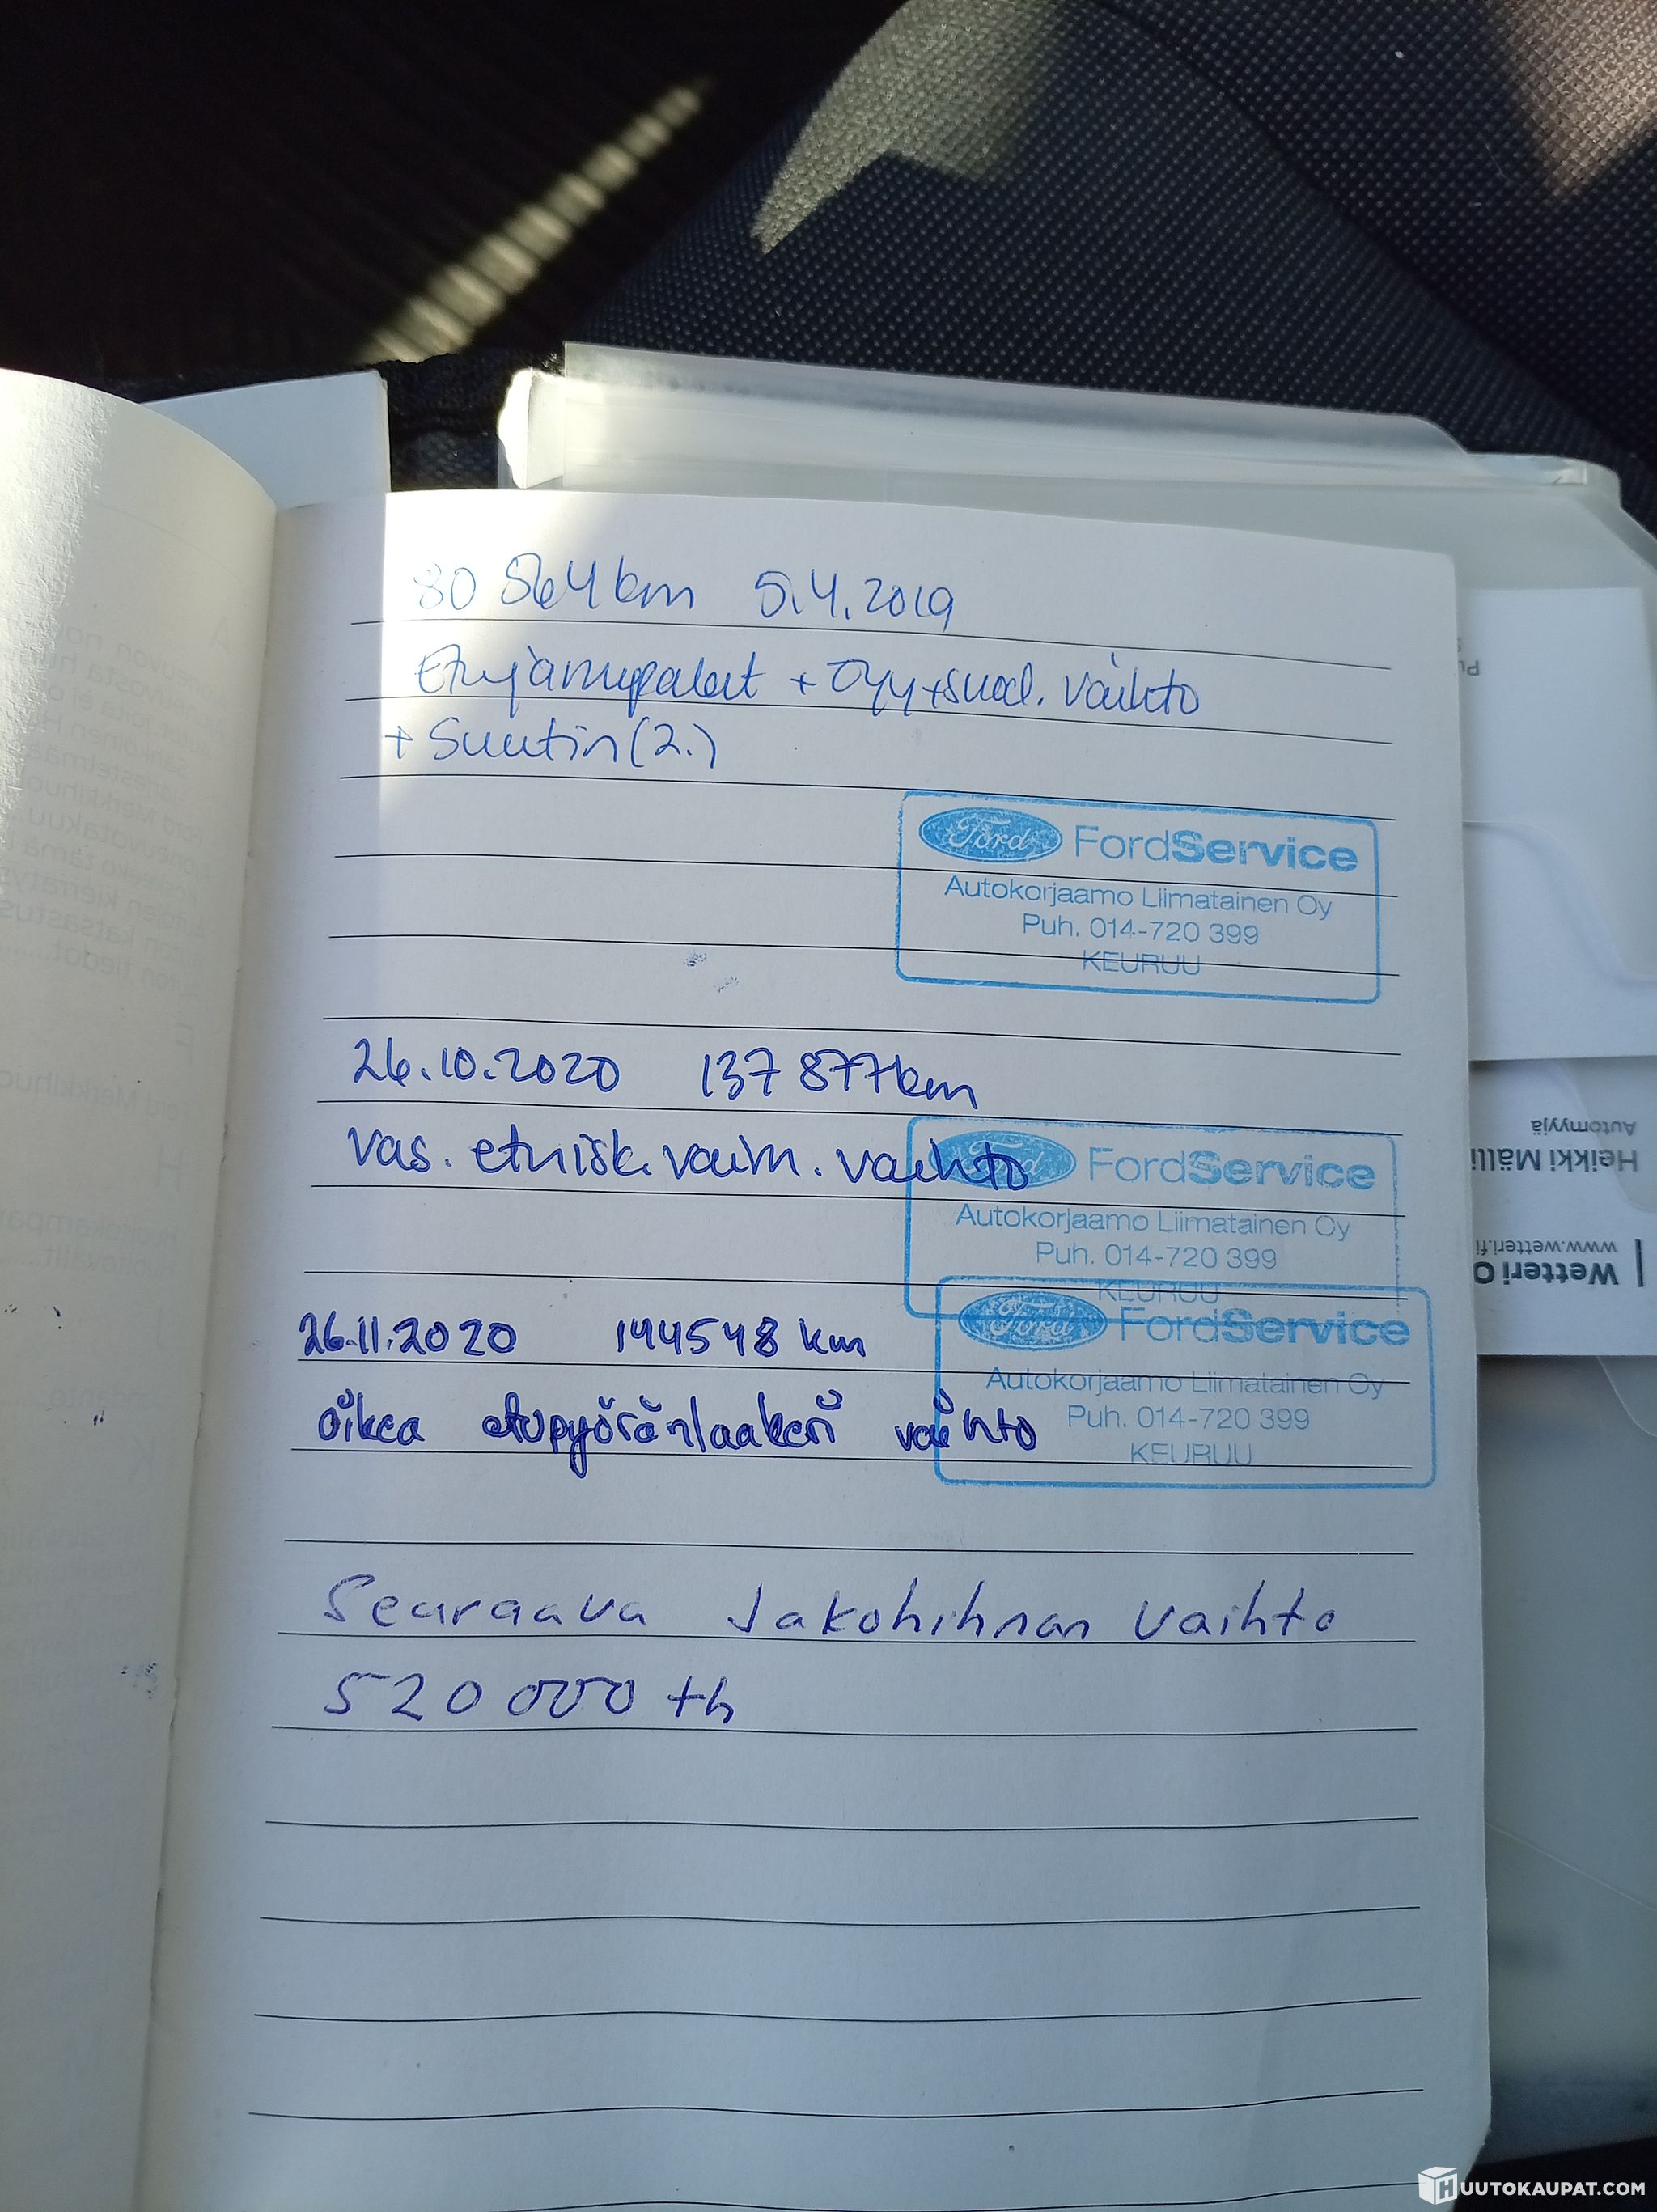 80 564 km 5.4.2019
Etujarrupalat + Öljy+suod. vaihto
+ Suutin (2.)
Ford FordService
Autokorjaamo Liimatainen Oy
Puh. 014-720 399
KEURUU
26.10.2020 137 877km
vas. etuisk.vaim. vaihto
Ford FordService
Autokorjaamo Liimatainen Oy
Puh. 014-720 399
KEURUU
26.11.2020 144548 km
Ford FordService
Autokorjaamo Liimatainen Oy
oikea etupyöränlaakeri vaihto
Puh. 014-720 399
KEURUU
Seuraava Jakohihnan vaihto
520 000 th
Automyyjä
Heikki Mälli
www.wetteri.fi
Wetteri O
HUUTOKAUPAT.COM